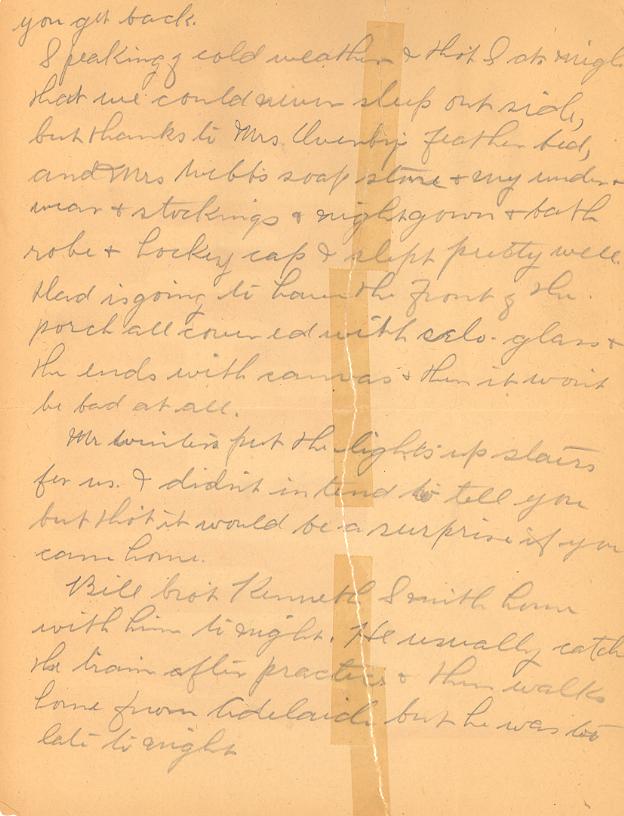 you get back.
Speaking of cold weather I thot Saturday nigh
that we could never sleep out side,
but thanks to Mrs. feather bed,
and Mrs Webb's soap stone + my under-
wear + stockings + nightgown + bath
robe + hockey cap I slept pretty well.
Had is going to have the front of the
porch all covered with celo-glass +
the ends with canvas + then it won't
be bad at all.
Mr Winters put the lights up stairs
for us. I didn't intend to tell you
but thot it would be a surprise if you
came home.
Bill brot Kenneth Smith home
with him to night. He usually catch
the train after practice + then walks
home from Adelaide but he was too
late to night